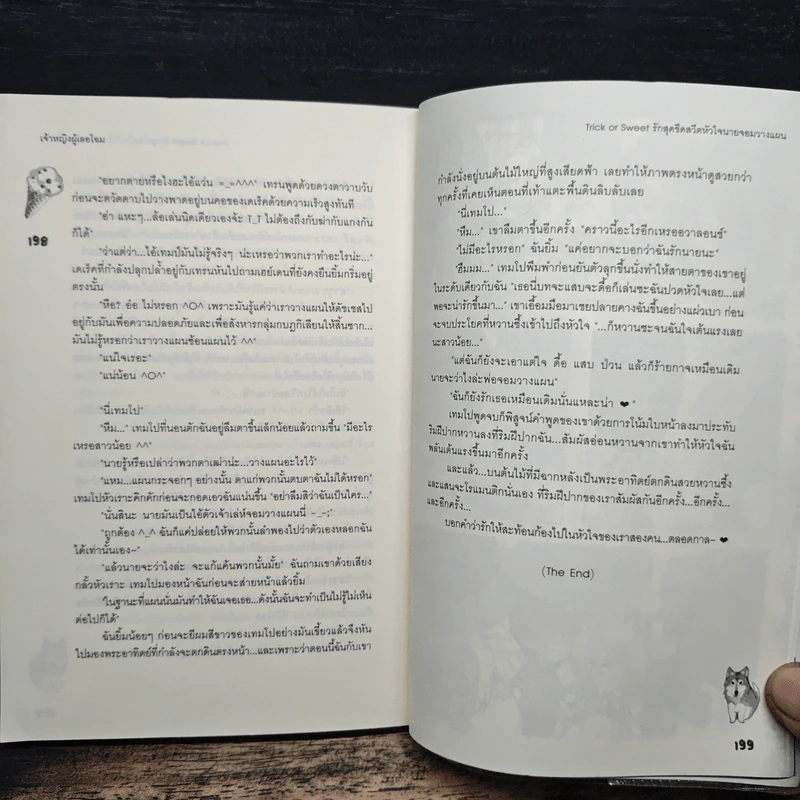 เจ้าหญิงผู้เลอโฉม
"อยากตายหรือไงฮะไอ้แว่น =_=^^^" เทรนพูดด้วยดวงตาวาบวับ
ก่อนจะตวัดดาบไปวางพาดอยู่บนคอของเดเร็คด้วยความเร็วสูงทันที
"อ๋า แหะๆ...ล้อเล่นนิดเดียวเองจ้ะ T_T ไม่ต้องถึงกับฆ่ากับแกงกัน
ก็ได้"
198
"ว่าแต่ว่า...ไอ้เทมป์มันไม่รู้จริงๆ น่ะเหรอว่าพวกเราทำอะไรน่ะ..."
เดเร็คที่กำลังปลุกปล้ำอยู่กับเทรนหันไปถามเฮย์เดนที่ยังคงยืนยิ้มกริ่มอยู่
ตรงนั้น
"หือ? อ๋อ ไม่หรอก ^O^ เพราะมันรู้แค่ว่าเราวางแผนให้ดัชเชสไป
อยู่กับมันเพื่อความปลอดภัยและเพื่อสังหารกลุ่มกบฏกิเลียนให้สิ้นซาก...
มันไม่รู้หรอกว่าเราวางแผนซ้อนแผนไว้ ^^"
"แน่ใจเรอะ"
"แน่น้อน ^O^"
"นี่เทมโป"
"หืม..." เทมโปที่นอนตักฉันอยู่ลืมตาขึ้นเล็กน้อยแล้วถามขึ้น "มีอะไร
เหรอสาวน้อย ^^"
"นายรู้หรือเปล่าว่าพวกตาเฒ่าน่ะ...วางแผนอะไรไว้"
"แหม...แผนกระจอกๆ อย่างนั้น ตาแก่พวกนั้นตบตาฉันไม่ได้หรอก"
เทมโปหัวเราะคิกคักก่อนจะกอดเอวฉันแน่นขึ้น "อย่าลืมสิว่าฉันเป็นใคร..."
"นั่นสินะ นายมันเป็นไอ้ตัวเจ้าเล่ห์จอมวางแผนนี่ -_-;"
"ถูกต้อง ^_^ ฉันก็แค่ปล่อยให้พวกนั้นลำพองไปว่าตัวเองหลอกฉัน
ได้เท่านั้นเอง~"
"แล้วนายจะว่าไงล่ะ จะแก้แค้นพวกนั้นมั้ย" ฉันถามเขาด้วยเสียง
กลั้วหัวเราะ เทมโปมองหน้าฉันก่อนจะส่ายหน้าแล้วยิ้ม
"ในฐานะที่แผนนั่นมันทำให้ฉันเจอเธอ...ดังนั้นฉันจะทำเป็นไม่รู้ไม่เห็น
ต่อไปก็ได้"
ฉันยิ้มน้อยๆ ก่อนจะยีผมสีขาวของเทมโปอย่างมันเขี้ยวแล้วจึงหัน
ไปมองพระอาทิตย์ที่กำลังจะตกดินตรงหน้า...และเพราะว่าตอนนี้ฉันกับเขา
Trick or Sweet รักสุดขีดสวีตหัวใจนายจอมวางแผน
กำลังนั่งอยู่บนต้นไม้ใหญ่ที่สูงเสียดฟ้า เลยทำให้ภาพตรงหน้าดูสวยกว่า
ทุกครั้งที่เคยเห็นตอนที่เท้าแตะพื้นดินลิบลับเลย
"นี่เทมโป..."
"หืม..." เขาลืมตาขึ้นอีกครั้ง "คราวนี้อะไรอีกเหรออวาลอนช์"
"ไม่มีอะไรหรอก" ฉันยิ้ม "แค่อยากจะบอกว่าฉันรักนายนะ"
"ฮืมมม..." เทมโปพึมพำก่อนยันตัวลุกขึ้นนั่งทำให้สายตาของเขาอยู่
ในระดับเดียวกับฉัน "เธอนี่บทจะแสบจะดื้อก็เล่นซะฉันปวดหัวใจเลย...แต่
พอจะน่ารักขึ้นมา..." เขาเอื้อมมือมาเชยปลายคางฉันขึ้นอย่างแผ่วเบา ก่อน
จะจบประโยคที่หวานซึ้งเข้าไปถึงหัวใจ "...ก็หวานซะจนฉันใจเต้นแรงเลย
นะสาวน้อย..."
"แต่ฉันก็ยังจะเอาแต่ใจ ดื้อ แสบ ป่วน แล้วก็ร้ายกาจเหมือนเดิม
นายจะว่าไงล่ะพ่อจอมวางแผน"
"ฉันก็ยังรักเธอเหมือนเดิมนั่นแหละน่า ❤"
เทมโปพูดจบก็พิสูจน์คำพูดของเขาด้วยการโน้มใบหน้าลงมาประทับ
ริมฝีปากหวานลงที่ริมฝีปากฉัน...สัมผัสอ่อนหวานจากเขาทำให้หัวใจฉัน
พลันเต้นแรงขึ้นมาอีกครั้ง
และแล้ว...บนต้นไม้ที่มีฉากหลังเป็นพระอาทิตย์ตกดินสวยหวานซึ้ง
และแสนจะโรแมนติกนั่นเอง ที่ริมฝีปากของเราสัมผัสกันอีกครั้ง...อีกครั้ง...
และอีกครั้ง...
บอกคำว่ารักให้สะท้อนก้องไปในหัวใจของเราสองคน...ตลอดกาล~ ❤
(The End)
199